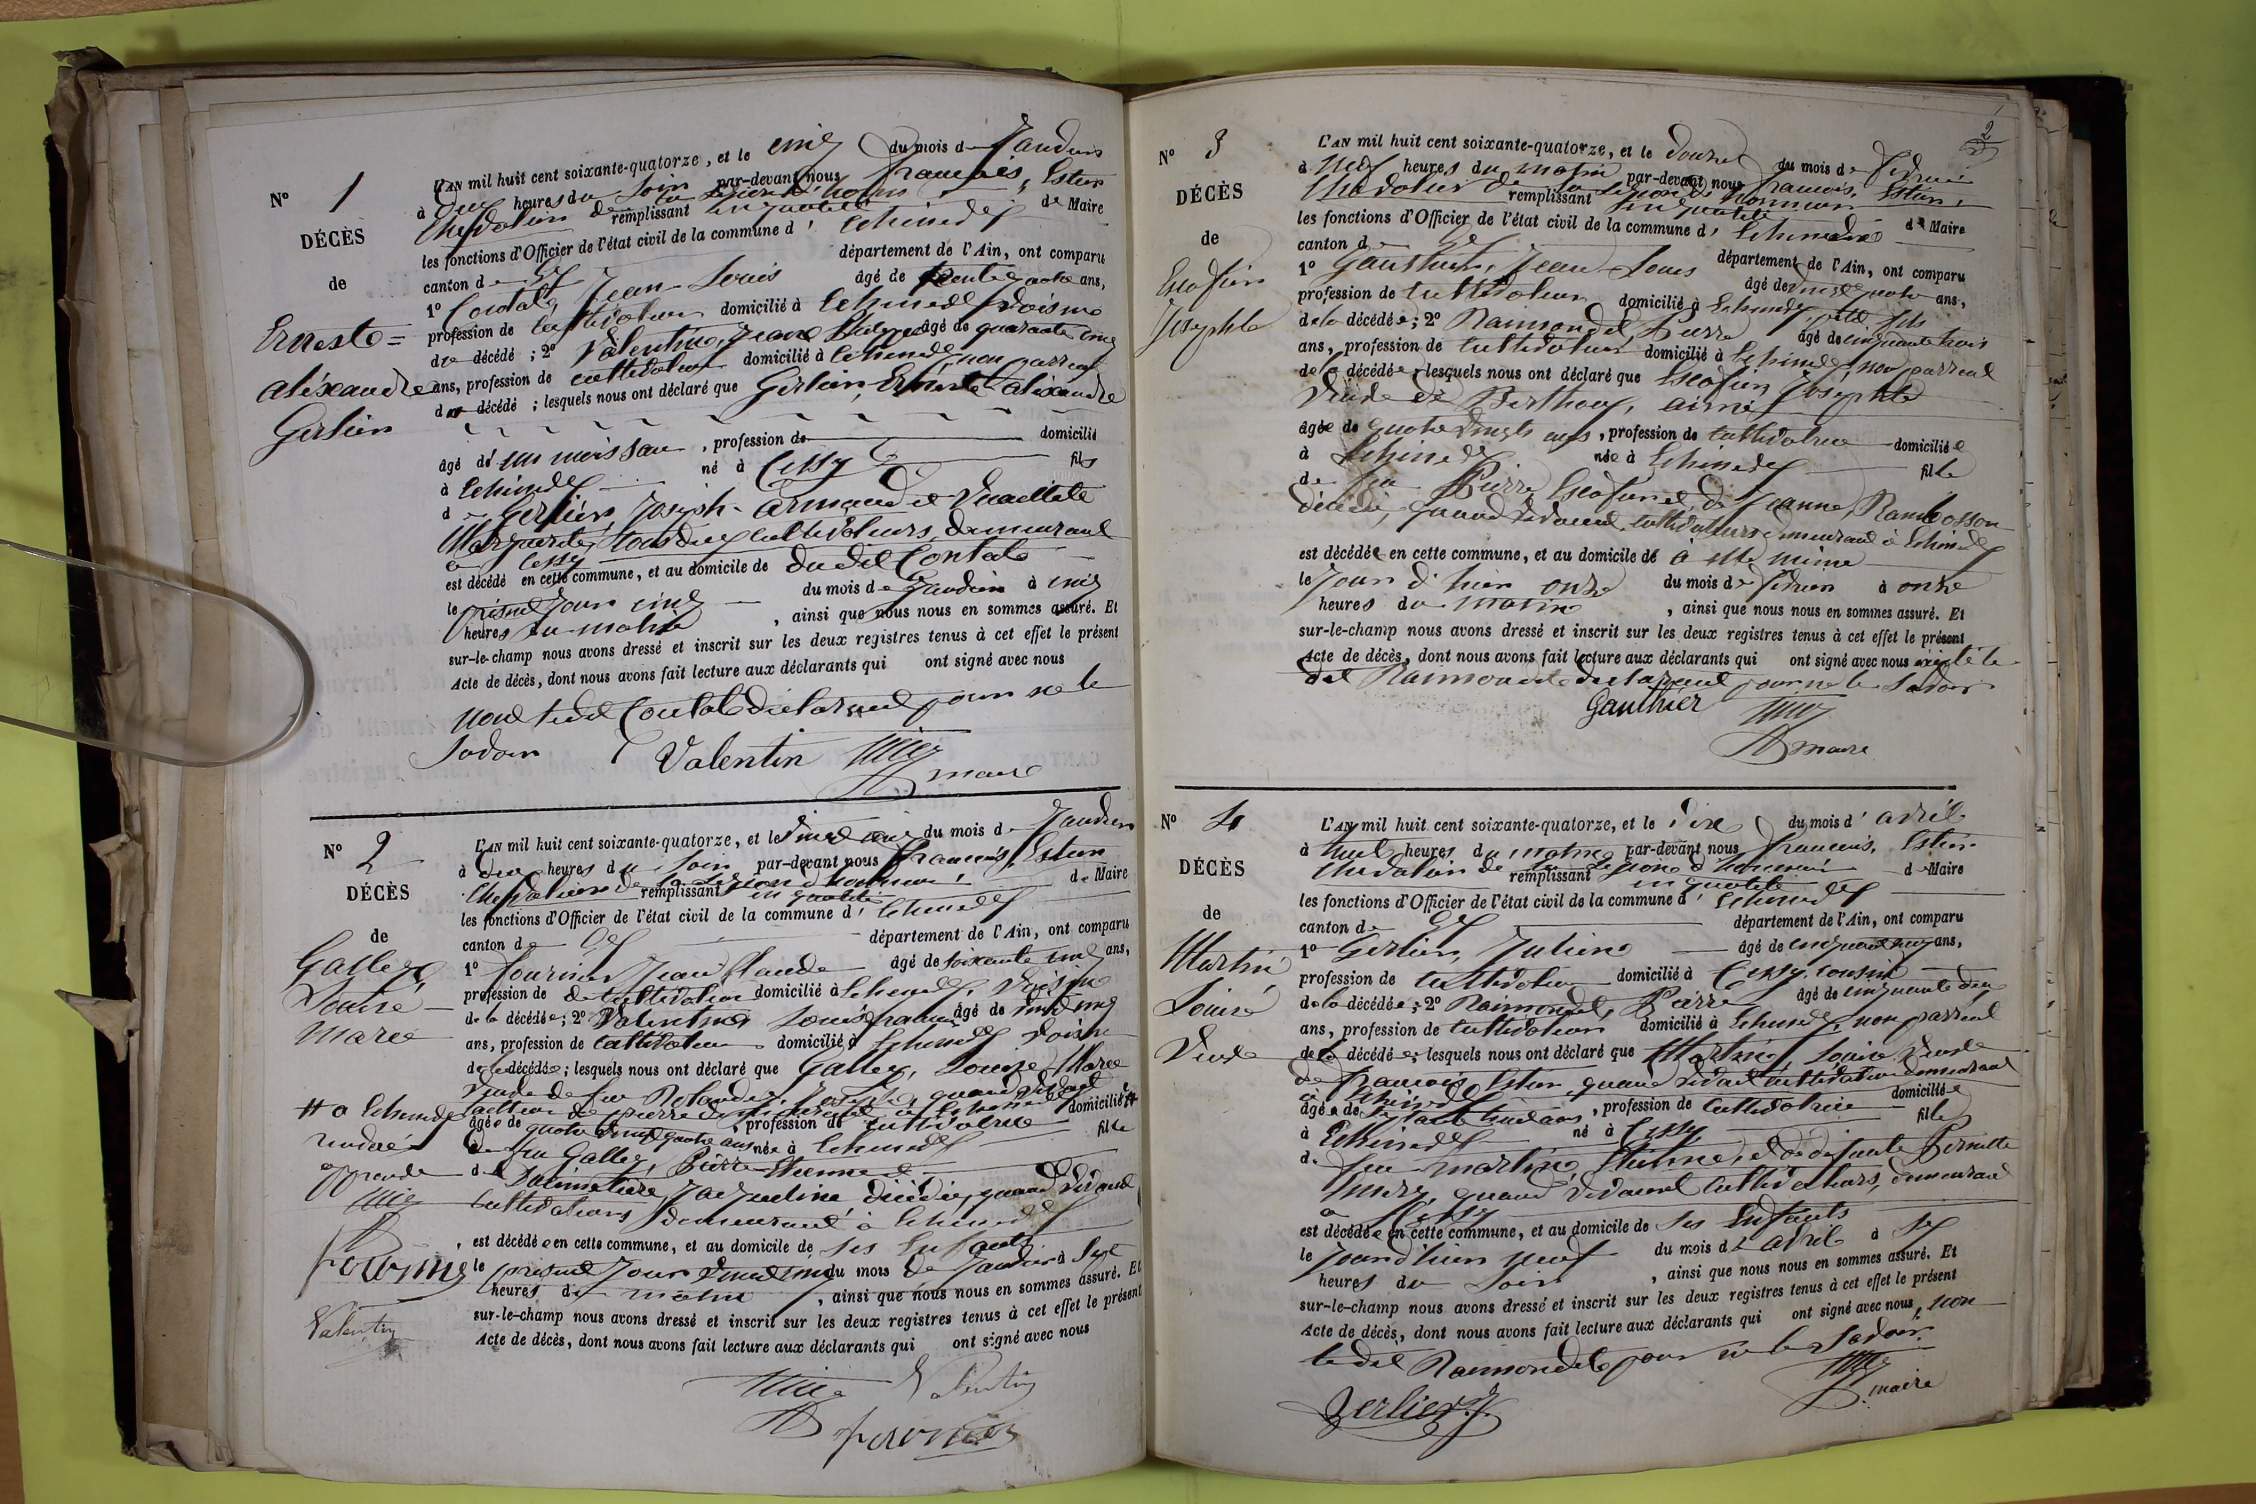 N° 1
DÉCÈS
de
Erneste=
aléxandre
Gerlier
L'AN mil huit cent soixante-quatorze, et le cinq du mois de Janvier
à deux heures du Soir par-devant nous François, Estier
Chevalier de la Légion d'honneur remplissant en qualité de Maire
les fonctions d'Officier de l'état civil de la commune d'Echenevex
canton de Gex département de l'Ain, ont comparu
1° Contat, Jean Louis âgé de trente quatre ans,
profession de cultivateur domicilié à Echenevex voisin
du décédé ; 2° Valentin, Jean âgé de quarante cinq
ans, profession de cultivateur domicilié à Echenevex non parent
du décédé ; lesquels nous ont déclaré que Gerlier, Erneste aléxandre
âgé d'un mois , profession de domicilié
à Echenevex né à Cessy fils
de Gerlier, Joseph armand et
Marguerite, tous deux cultivateurs, demeurant
à Cessy
est décédé en cette commune, et au domicile de dudit Contat
le présent jour cinq du mois de Janvier à cinq
heures du matin , ainsi que nous nous en sommes assuré. Et
sur-le-champ nous avons dressé et inscrit sur les deux registres tenus à cet effet le présent
Acte de décès, dont nous avons fait lecture aux déclarants qui ont signé avec nous
non ledit Contat déclarant pour ne le
Savoir Valentin
maire
N° 2
DÉCÈS
de
Galley
Louise
Marie
à Echenevex
approuvé
Fournier
Valentin
L'AN mil huit cent soixante-quatorze, et le vingt cinq du mois de Janvier
à deux heures du Soir par-devant nous François, Estier
Chevalier de la Légion d'honneur remplissant en qualité de Maire
les fonctions d'Officier de l'état civil de la commune d'Echenevex
canton de Gex département de l'Ain, ont comparu
1° Fournier Jean Claude âgé de soixante cinq ans,
profession de cultivateur domicilié à Echenevex, voisin
de la décédée ; 2° Valentin Louis françois âgé de vingt cinq
ans, profession de cultivateur domicilié à Echenevex voisin
de la décédée ; lesquels nous ont déclaré que Galley, Louise Marie
Veuve de feu Rolandez, Joseph, quand vivait
demeurant à Echenevex domiciliée
âgée de quatre vingt quatre ans, profession de cultivatrice
née à Echenevex fille
de feu Galley, Pierre Etienne et
de Jacqueline, décédés, quand vivaient
cultivateurs demeurant à Echenevex
est décédée en cette commune, et au domicile de ses Enfants
le présent jour vingt cinq du mois de Janvier à Sept
heures du matin , ainsi que nous nous en sommes assuré. Et
sur-le-champ nous avons dressé et inscrit sur les deux registres tenus à cet effet le présent
Acte de décès, dont nous avons fait lecture aux déclarants qui ont signé avec nous
Valentin
Fournier
2
N° 3
DÉCÈS
de
Escofier
Josephte
L'AN mil huit cent soixante-quatorze, et le douze du mois de Février
à Neuf heures du matin par-devant nous François, Estier,
Chevalier de la Légion d'honneur remplissant en qualité de Maire
les fonctions d'Officier de l'état civil de la commune d'Echenevex
canton de Gex département de l'Ain, ont comparu
1° Gauthier, Jean Louis âgé de vingt quatre ans,
profession de cultivateur domicilié à Echenevex, petit fils
de la décédée ; 2° Raimondet, Pierre âgé de cinquante trois
ans, profession de cultivateur domicilié à Echenevex, non parent
de la décédée ; lesquels nous ont déclaré que Escofier, Joséphte
Veuve de Berthoux, aimé
âgée de quatre vingts ans, profession de cultivatrice domiciliée
à Echenevex née à Echenevex fille
de feu Pierre Escofier et de Jeanne, Rambosson
décédés, quand vivaient cultivateurs demeurant à Echenevex
est décédée en cette commune, et au domicile de à elle même
le Jour d'hier onze du mois de Février à onze
heures du matin , ainsi que nous nous en sommes assuré. Et
sur-le-champ nous avons dressé et inscrit sur les deux registres tenus à cet effet le présent
Acte de décès, dont nous avons fait lecture aux déclarants qui ont signé avec nous excepté le
dit Raimondet déclarant pour ne le Savoir
Gauthier
maire
N° 4
DÉCÈS
de
Martin
Louise
Veuve
L'AN mil huit cent soixante-quatorze, et le dix du mois d'avril
à huit heures du matin par-devant nous François, Estier
Chevalier de la Légion d'honneur remplissant en qualité de Maire
les fonctions d'Officier de l'état civil de la commune d'Echenevex
canton de Gex département de l'Ain, ont comparu
1° Gerlier, Julien âgé de ans,
profession de cultivateur domicilié à Cessy, cousin
de la décédée ; 2° Raimondet, Pierre âgé de cinquante deux
ans, profession de cultivateur domicilié à Echenevex, non parent
de la décédée ; lesquels nous ont déclaré que Martin, Louise Veuve
de François Estier quand vivait cultivateur demeurant
à Echenevex domiciliée
âgée de , profession de cultivatrice
à Echenevex né à Cessy fille
de feu Martin, Etienne, et de défunte Pernette
quand vivaient cultivateurs, demeurant
à Cessy
est décédée en cette commune, et au domicile de ses Enfants
le Jour d'hier neuf du mois d'avril à Six
heures du Soir , ainsi que nous nous en sommes assuré. Et
sur-le-champ nous avons dressé et inscrit sur les deux registres tenus à cet effet le présent
Acte de décès, dont nous avons fait lecture aux déclarants qui ont signé avec nous, non
ledit Raimondet pour ne le Savoir.
maire
Gerlier J.